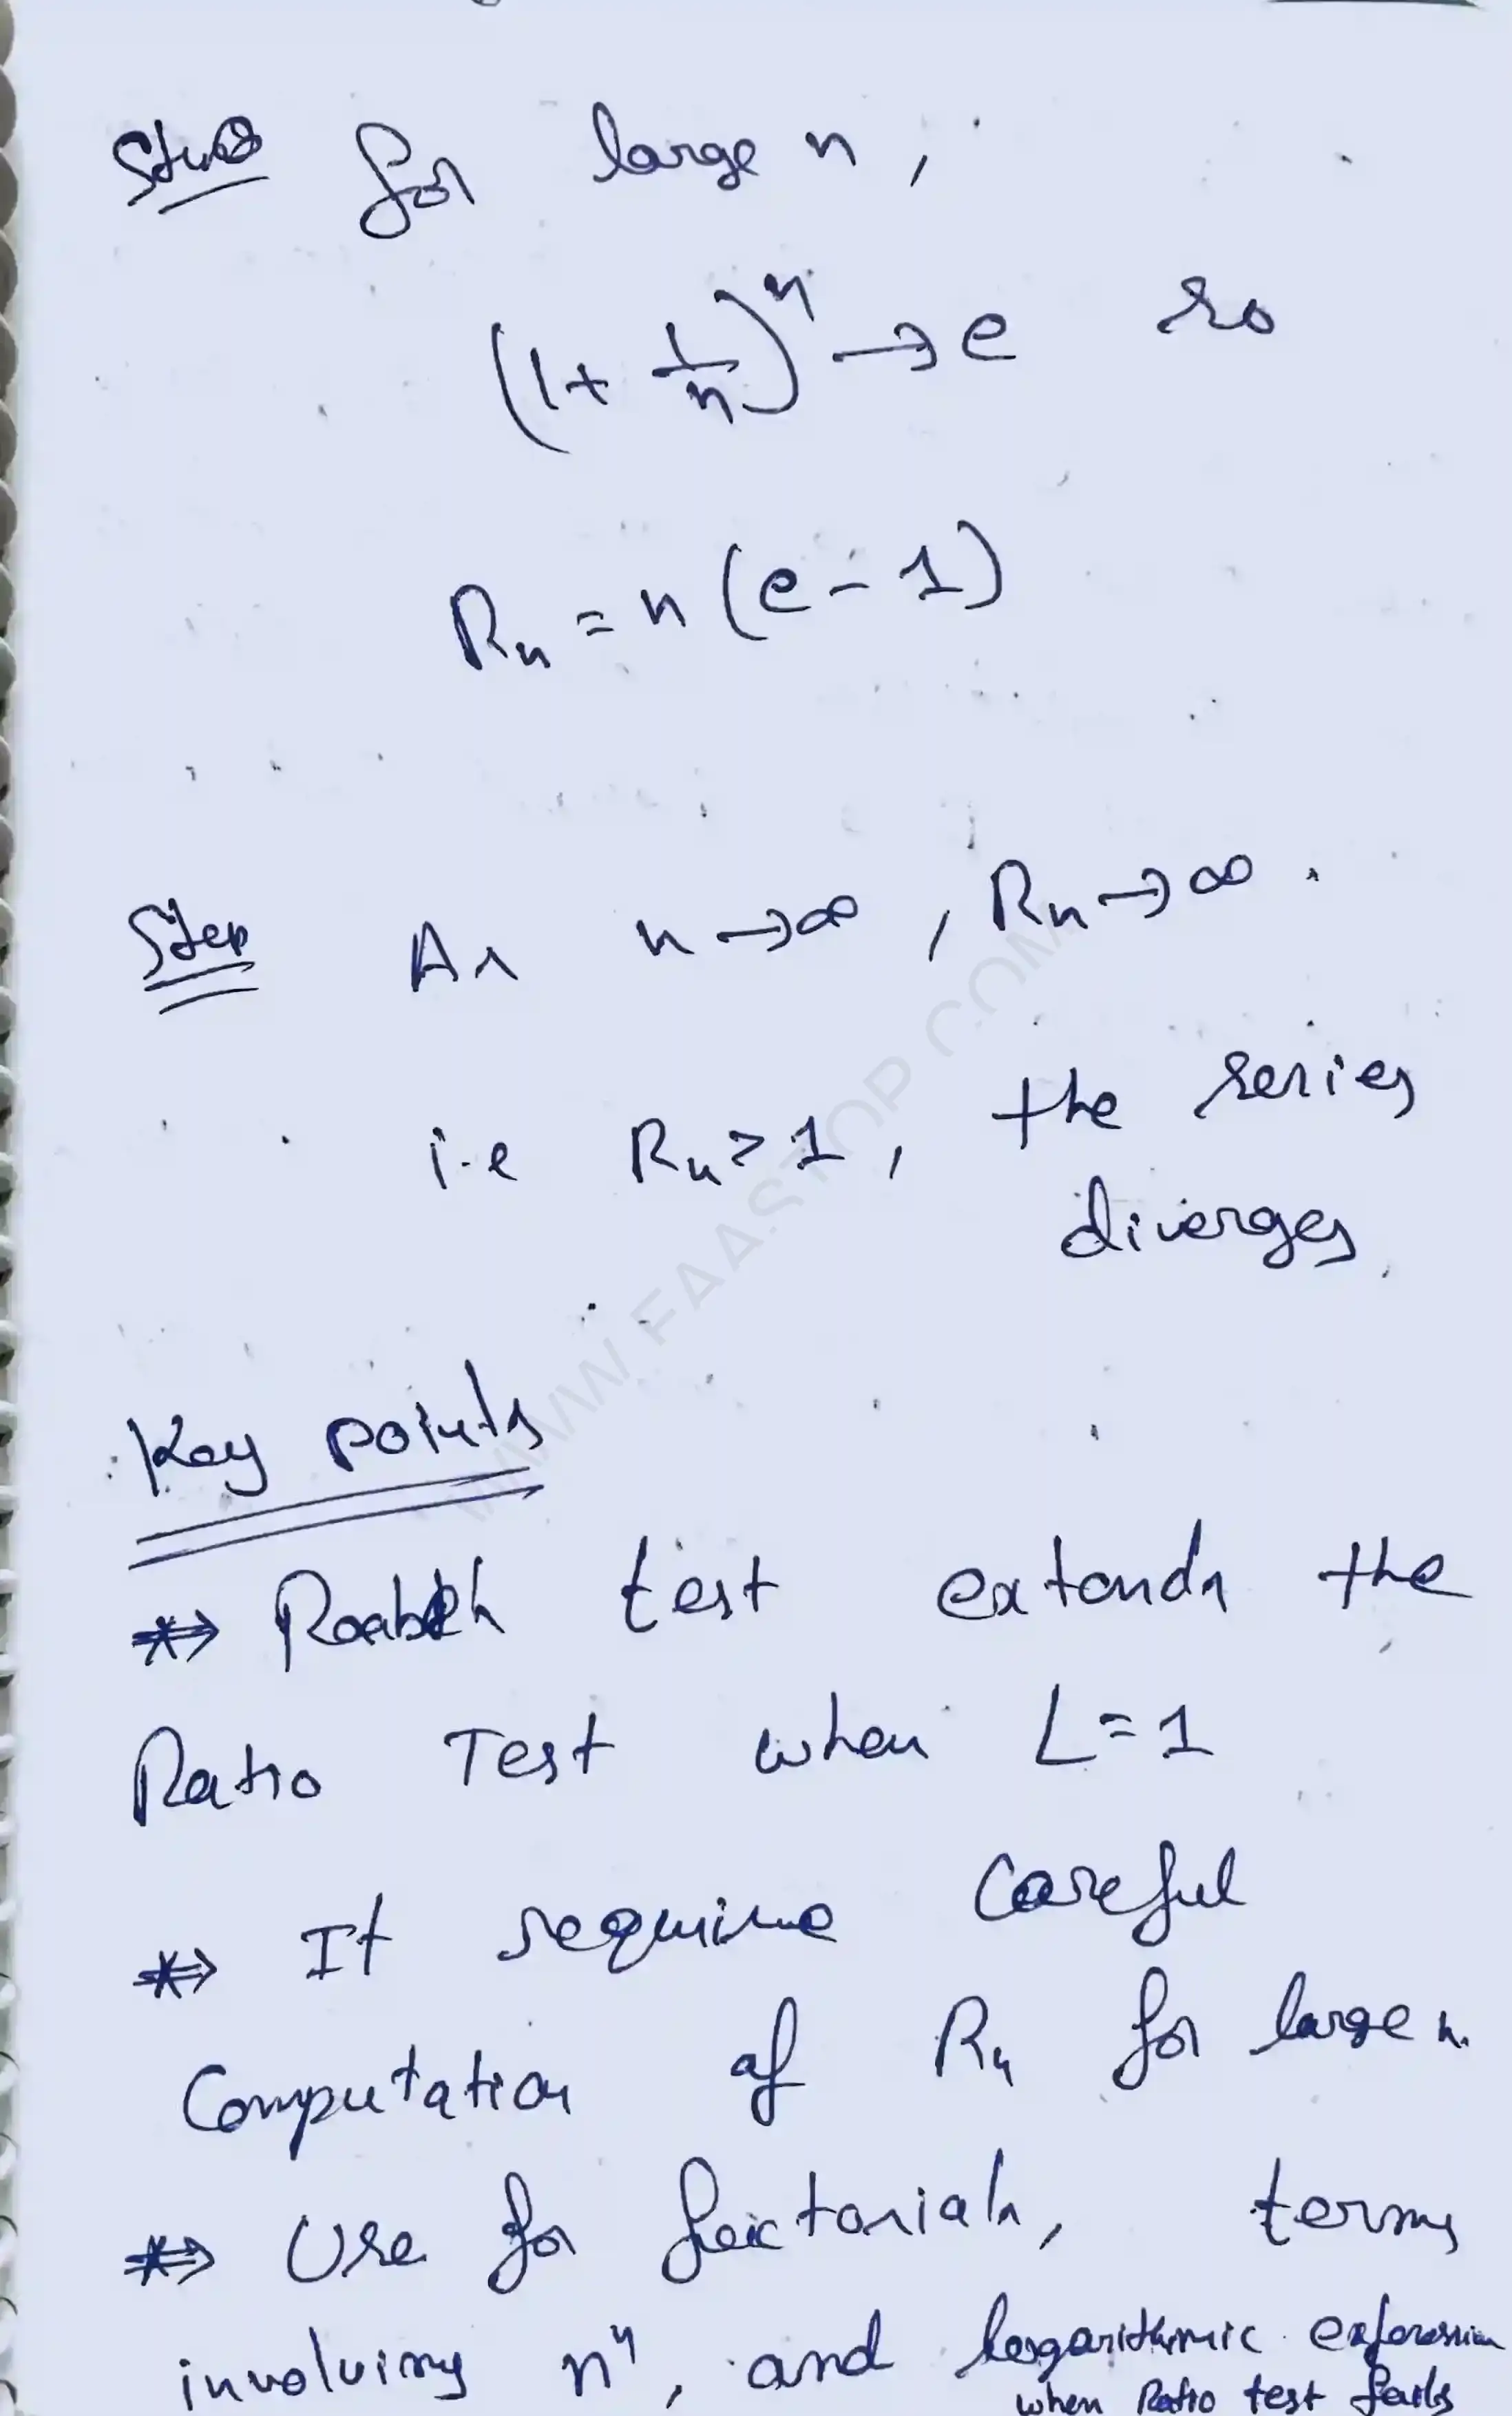 Step for large n,
(1 + 1/n)^n → e so
Rn = n (e - 1)
Step As n → ∞, Rn → ∞.
i.e Rn > 1, the series
diverges.
Key points
⇒ Raabth test extends the
Ratio Test when L = 1
⇒ It require careful
Computation of Rn for large n.
⇒ Use for factorials, terms
involving n^n, and logarithmic expression
when Ratio test fails
WWW.FAASTOP.COM